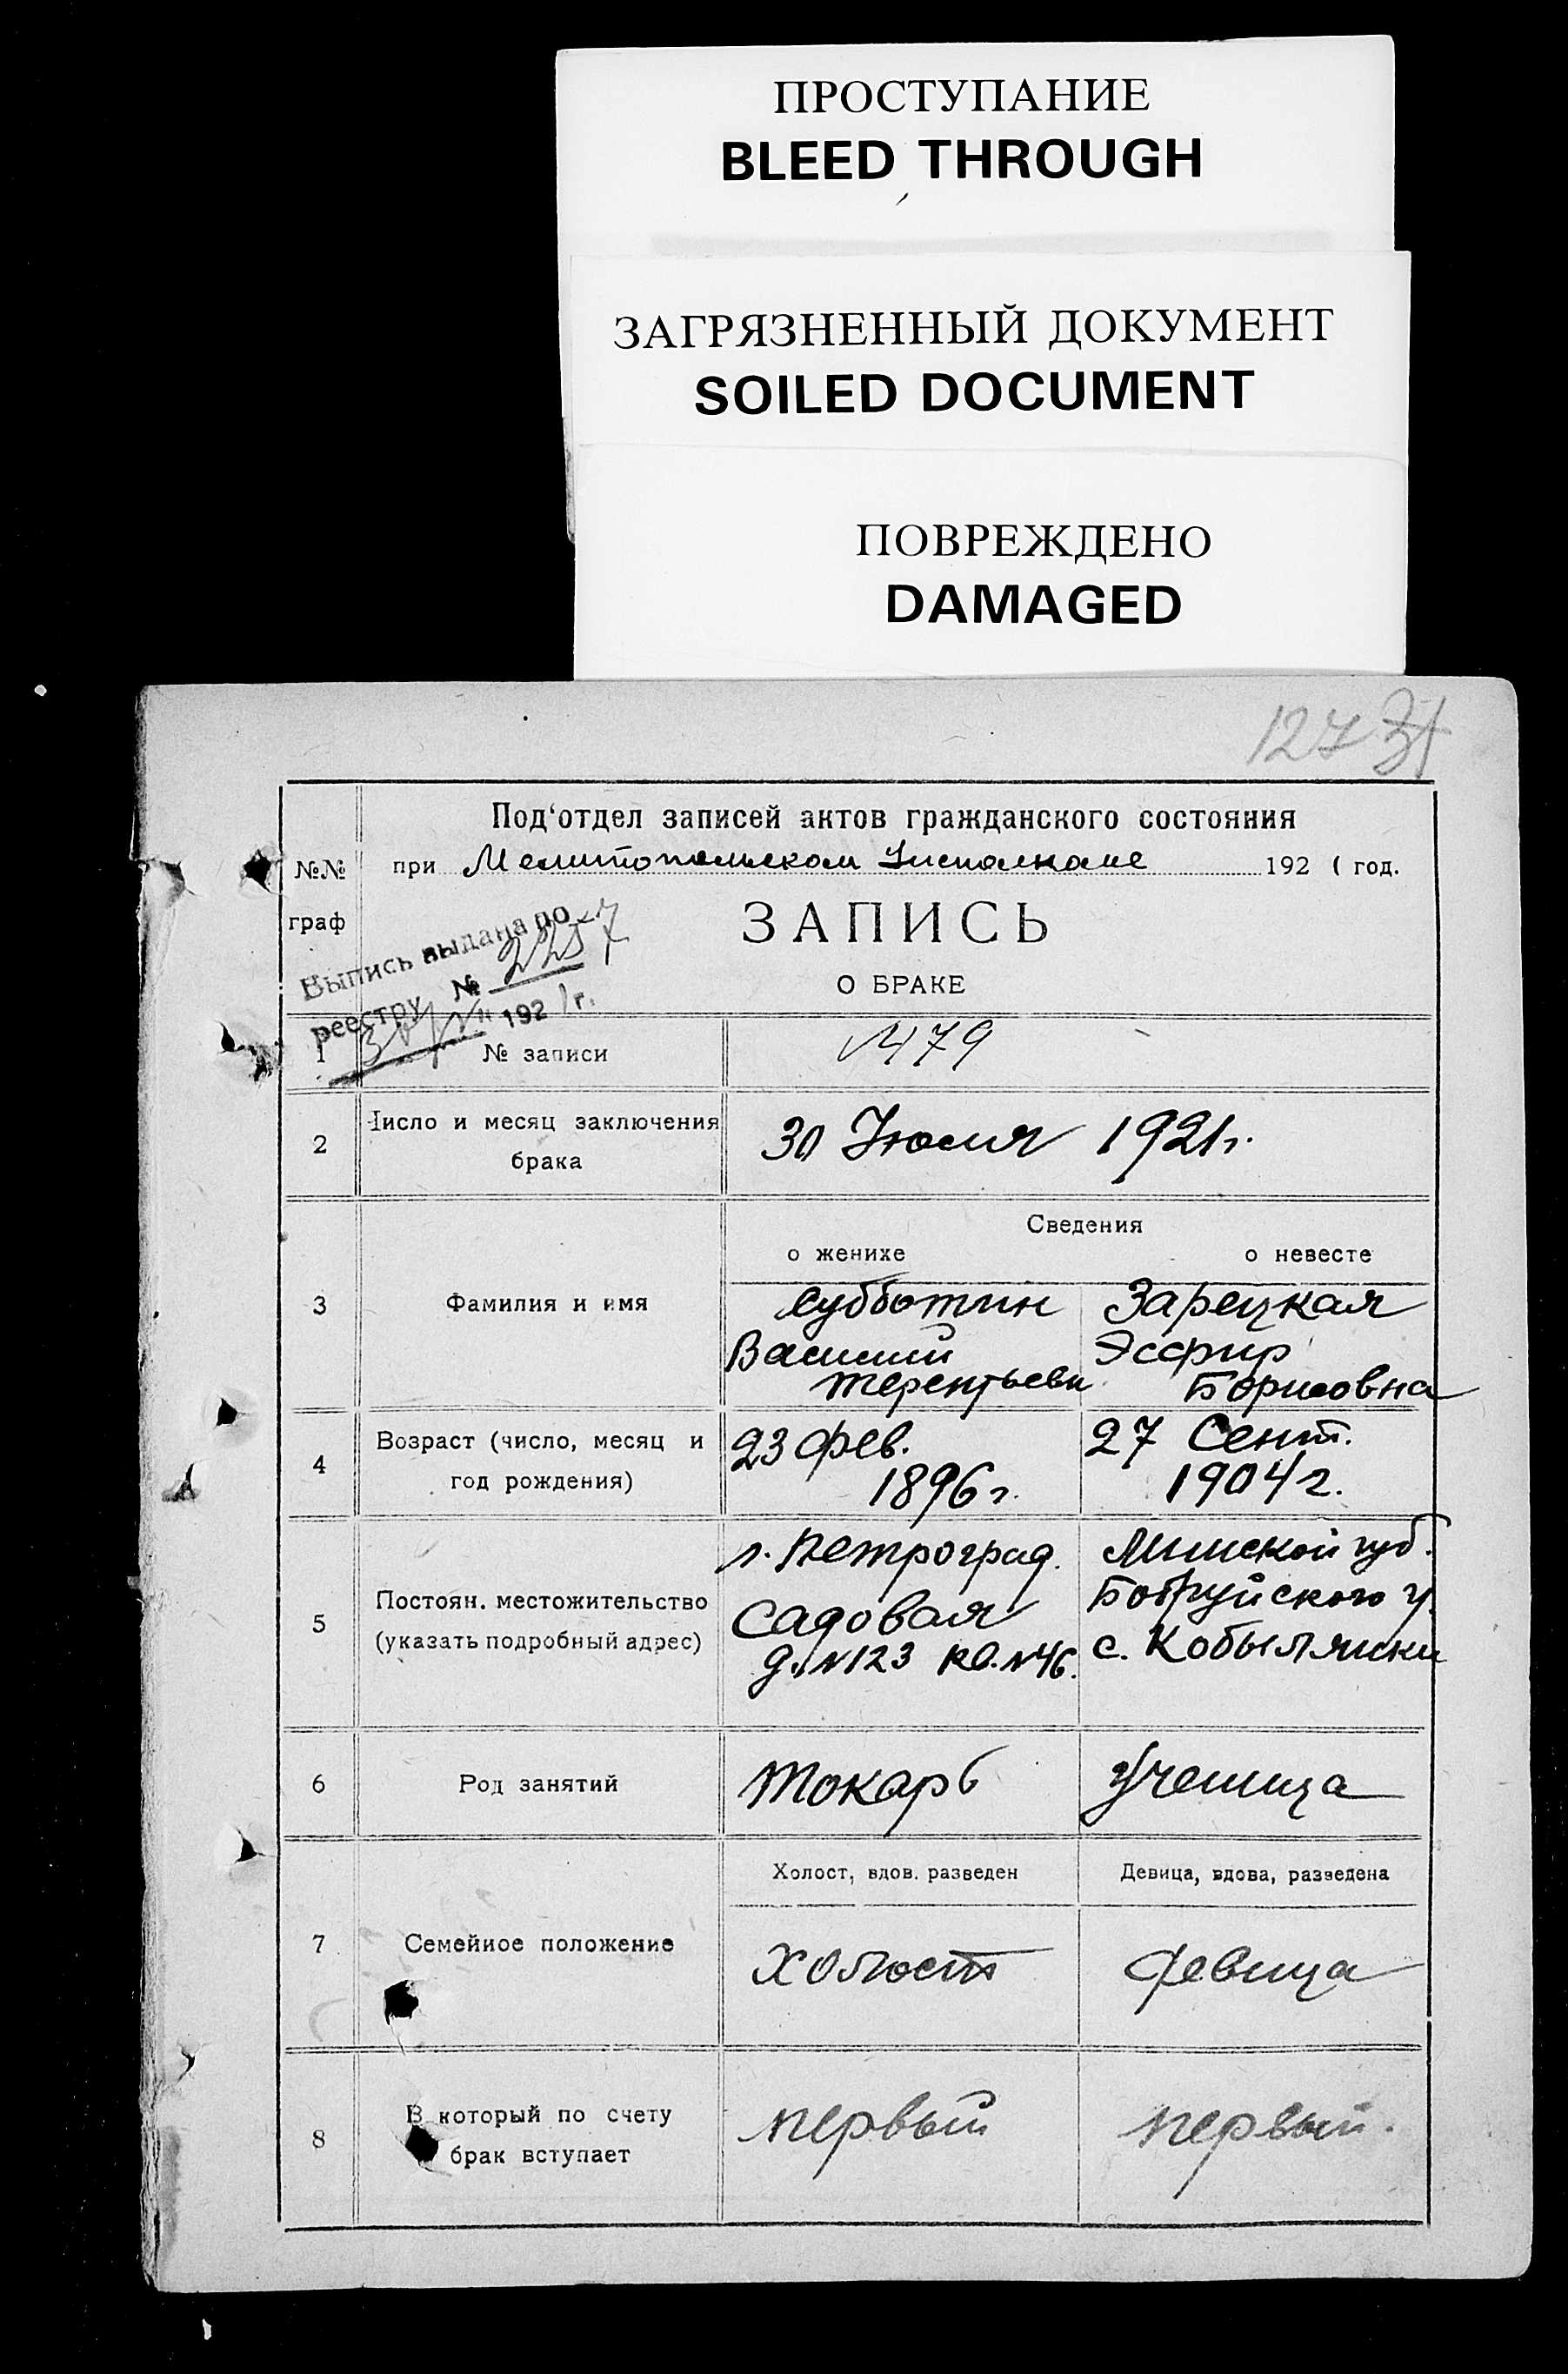 ПРОСТУПАНИЕ
BLEED THROUGH
ЗАГРЯЗНЕННЫЙ ДОКУМЕНТ
SOILED DOCUMENT
ПОВРЕЖДЕНО
DAMAGED
127
Под'отдел записей актов гражданского состояния
№№ граф
при Мелитопольском Исполкоме 1921 год.
Выпись выдана по
реестру № 2257
30/VII 1921 г.
ЗАПИСЬ
О БРАКЕ
1 № записи №479
2 Число и месяц заключения
брака
30 Июля 1921 г.
Сведения
о женихе о невесте
3 Фамилия и имя
Субботин
Василий
Терентьеви
Зарецкая
Эсфир
Борисовна
4 Возраст (число, месяц и
год рождения)
23 фев.
1896 г.
27 Сент.
1904 г.
5 Постоян. местожительство
(указать подробный адрес)
г. Петроград.
Садовая
д. №123 кв. №46.
Минской губ.
Бобруйского у.
с. Кобылянки
6 Род занятий
Токарь
Ученица
7 Семейное положение
Холост, вдов. разведен
Холост
Девица, вдова, разведена
девица
8 В который по счету
брак вступает
первый
первый.